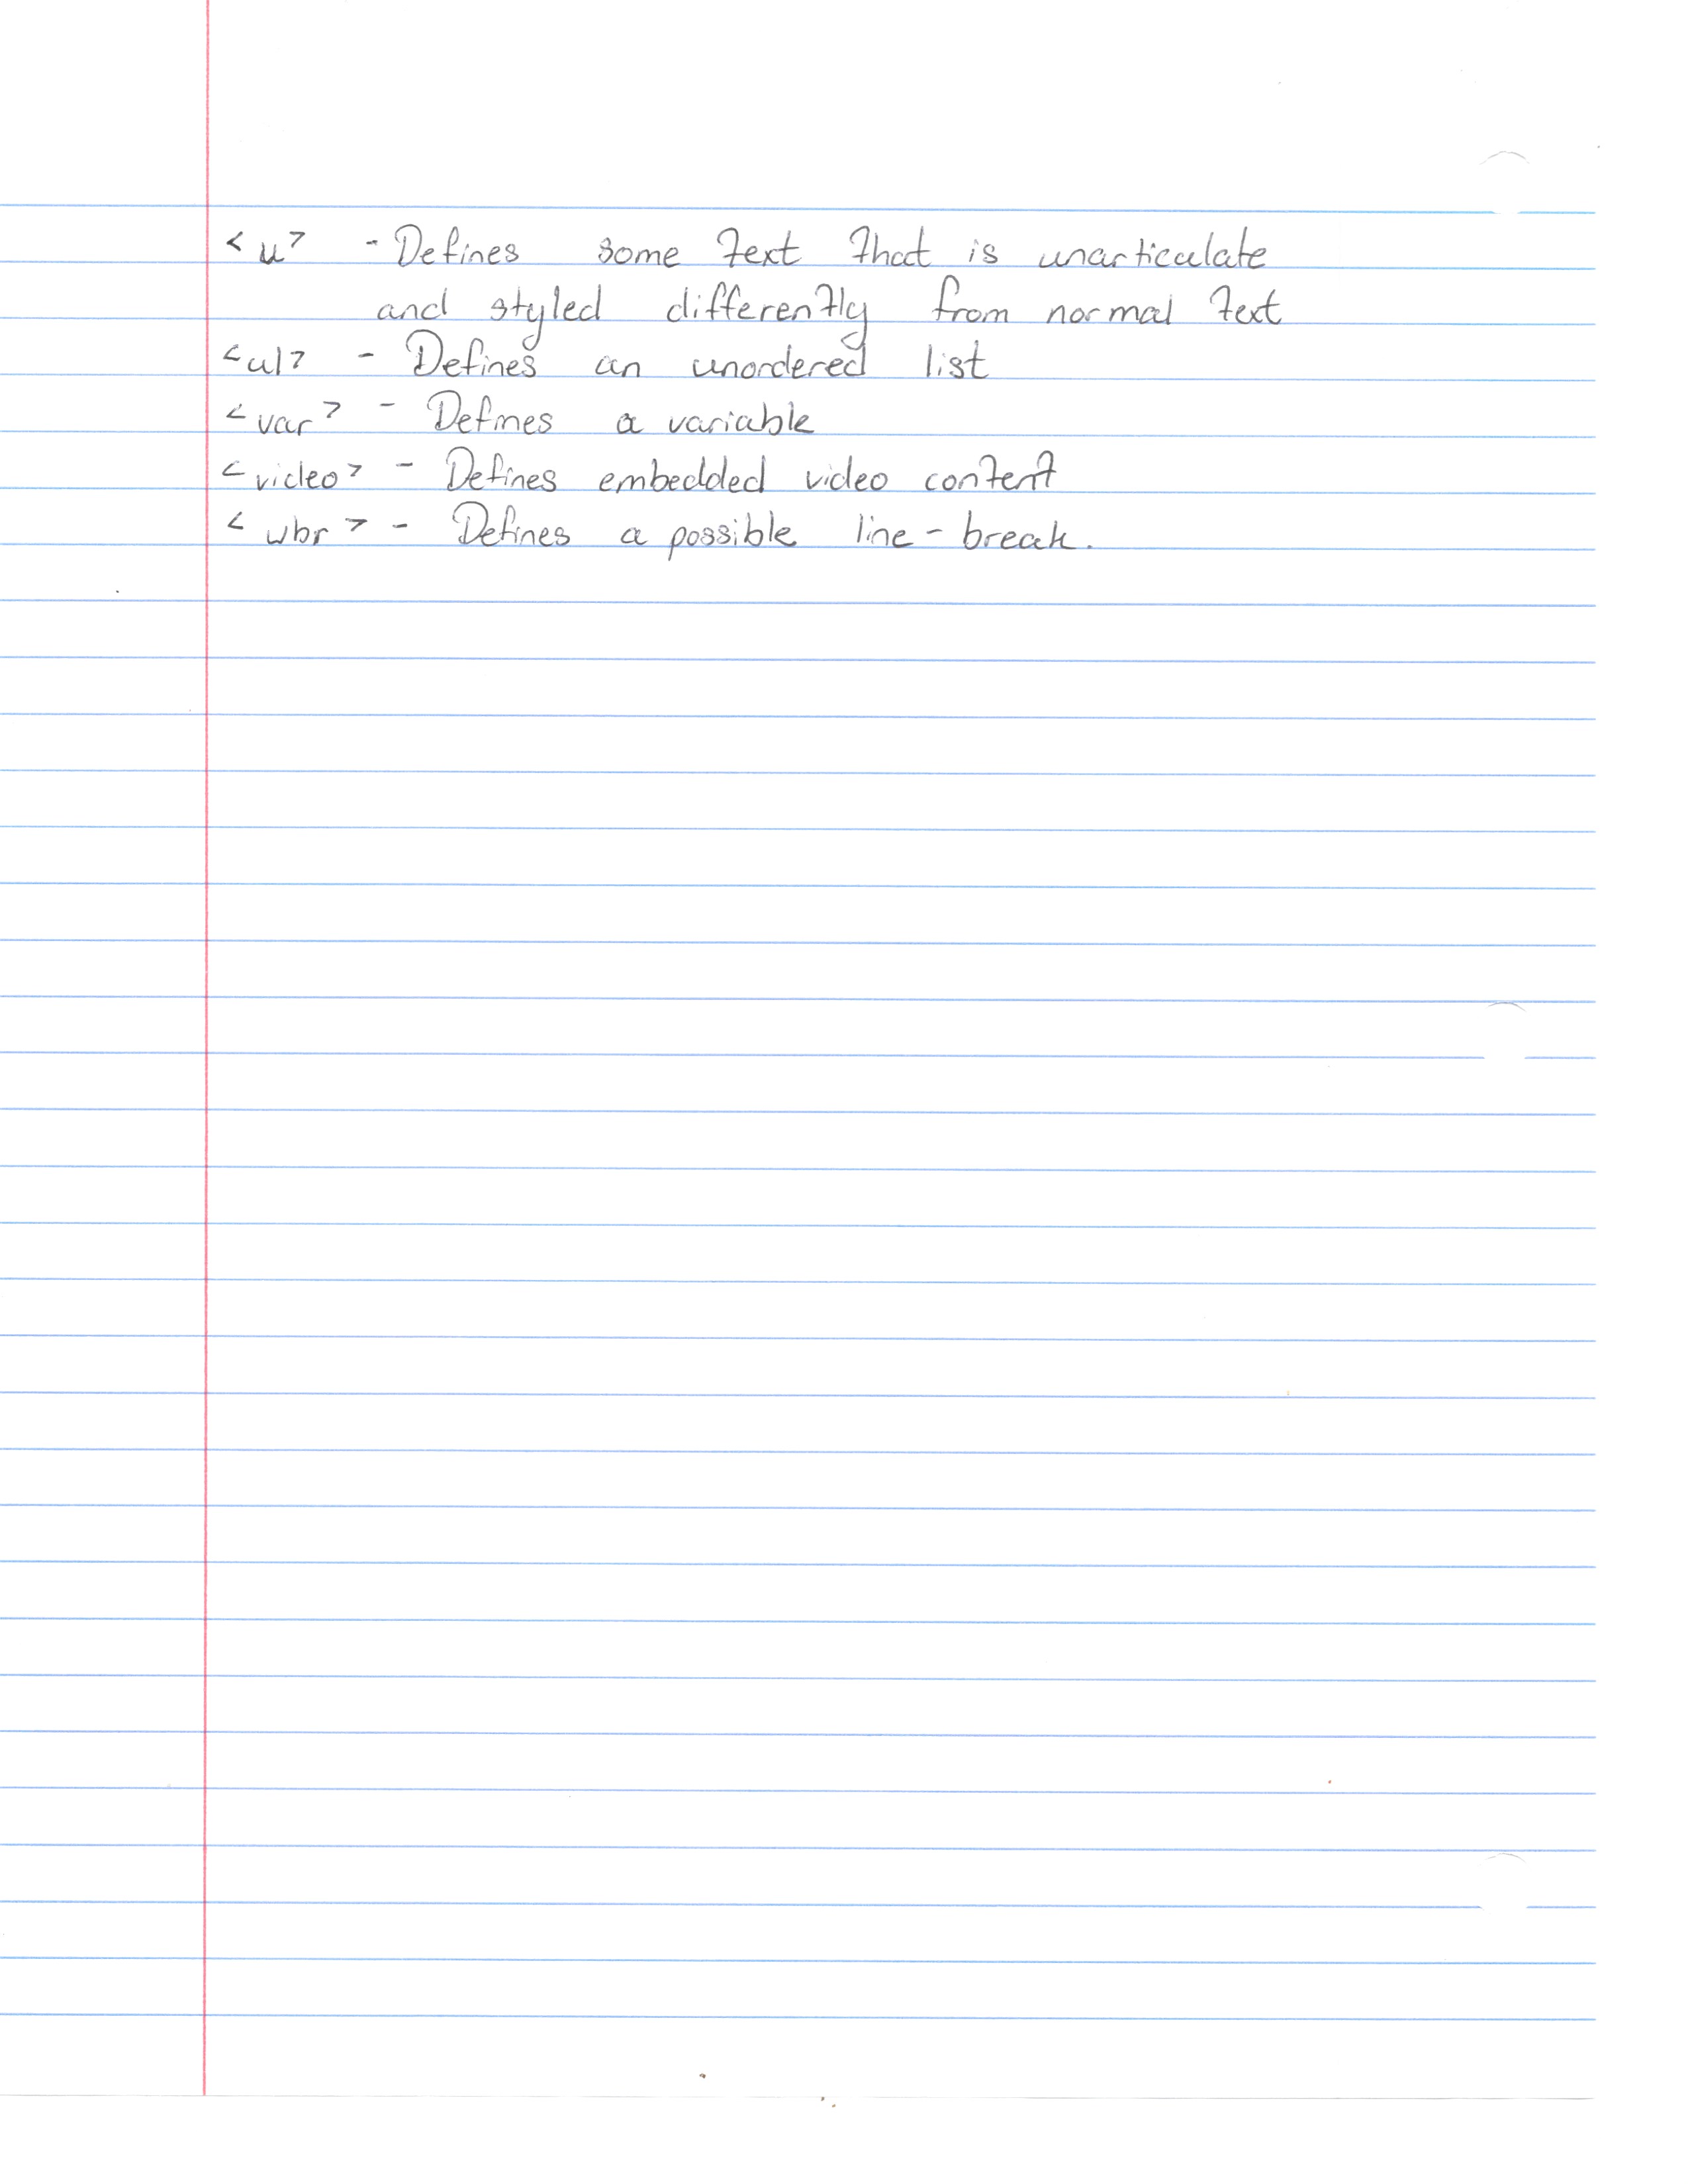 <u> - Defines some text that is unarticulate
and styled differently from normal text
<ul> - Defines an unordered list
<var> - Defines a variable
<video> - Defines embedded video content
<wbr> - Defines a possible line-break.